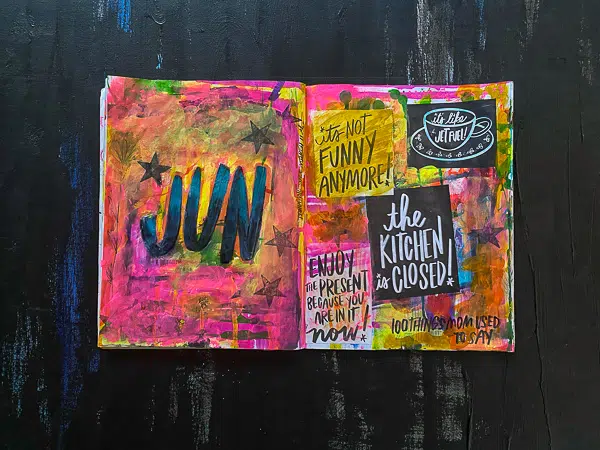 JUN
its NOT
FUNNY
ANYMORE!
it's like
JET FUEL!
the
KITCHEN
is CLOSED!
ENJOY
THE PRESENT
BECAUSE YOU
ARE IN IT
now!
100 THINGS MOM USED
TO SAY